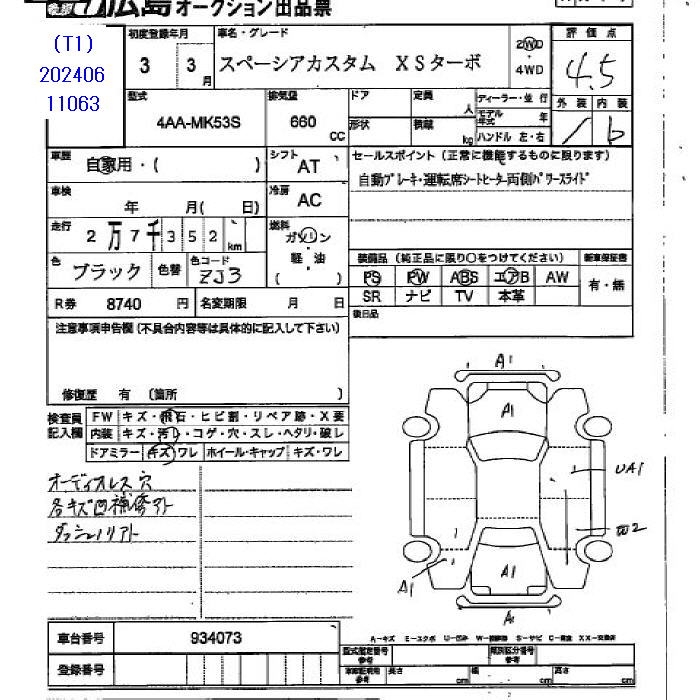 広島 オークション出品票
(T1)
202406
11063
初度登録年月
3 3月
車名・グレード
スペーシアカスタム XSターボ
2WD
・
4WD
評価点
4.5
型式
4AA-MK53S
排気量
660
CC
ドア
形状
定員
人
積載
kg
ディーラー・並行
モデル年式 年
ハンドル 左・右
外装 内装
b
車歴
自家用・( )
シフト
AT
セールスポイント (正常に機能するものに限ります)
自動ブレーキ・運転席シートヒーター両側パワースライド
車検
年 月( 日)
冷房
AC
走行
2万7千352km
燃料
ガソリン
軽・油
( )
色
ブラック
色替
色コード
ZJ3
装備品 (純正品に限り○をつけてください)
新車保証書
PS PW ABS エアB AW
有・無
SR ナビ TV 本革
R券 8740 円
名変期限 月 日
後日品
注意事項申告欄 (不具合内容等は具体的に記入して下さい)
修復歴 有 (箇所 )
検査員記入欄
FW キズ・飛石・ヒビ割・リペア跡・X要
内装 キズ・汚れ・コゲ・穴・スレ・ヘタリ・破レ
ドアミラー キズ・ワレ ホイール・キャップ キズ・ワレ
オーディオレス穴
各キズ凹補修アト
A1
A1
UA1
W2
A1
A1
A1
A-キズ E-エクボ U-凹み W-補修跡 S-サビ C-腐食 XX-交換済
車台番号 934073
登録番号
型式指定番号 参考
類別区分番号 参考
長さ cm 幅 cm 高さ cm